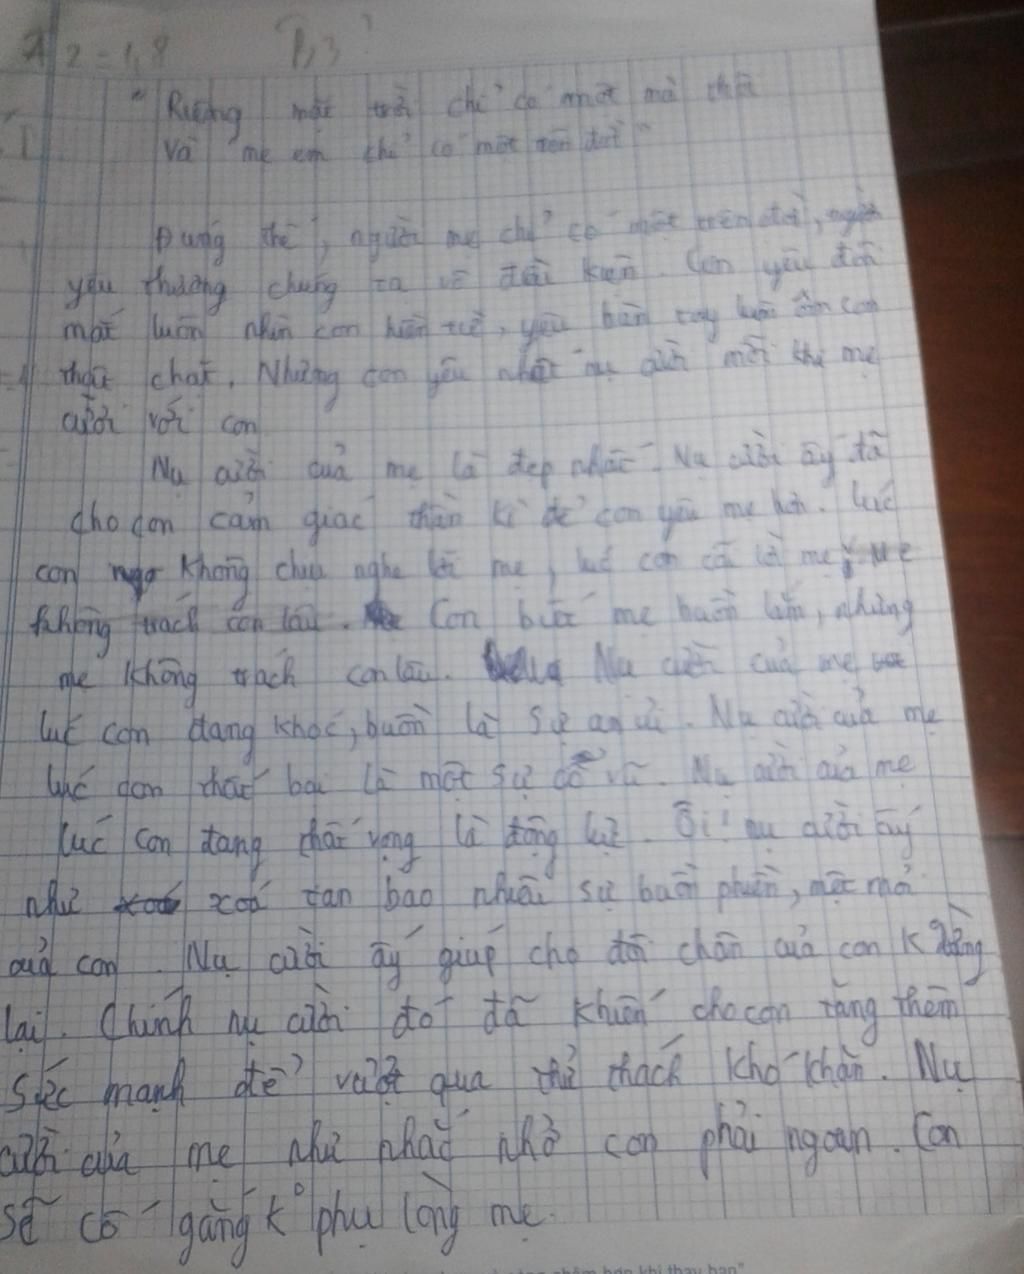 A 2 = 1,8 B, 3
" Riêng mặt trời chỉ có một mà thôi
Và mẹ em chỉ có một trên đời "
Đúng thế, người mẹ chỉ có một trên đời, người
yêu thương chúng ta vô điều kiện. Con yêu đôi
mắt luôn nhìn con hiền từ, yêu bàn tay luôn ôm con
thật chặt. Nhưng con yêu nhất nụ cười mỗi khi mẹ
cười với con
Nụ cười của mẹ là đẹp nhất. Nụ cười ấy đã
cho con cảm giác thần kì để con yêu mẹ hơn. Lúc
con không chịu nghe lời mẹ, lúc con cãi lời mẹ, mẹ
không trách con lâu. Con biết mẹ buồn lắm, nhưng
mẹ không trách con lâu. Nụ cười của mẹ
lúc con đang khóc, buồn là sự an ủi. Nụ cười của mẹ
lúc con thất bại là một sự dỗ về. Nụ cười của mẹ
lúc con đang thất vọng là động lực. Ôi! nụ cười ấy
như xoá tan bao nhiêu sự buồn phiền, mệt mỏi
của con. Nụ cười ấy giúp cho đôi chân của con k dừng
lại. Chính nụ cười đó đã khiến cho con tăng thêm
sức mạnh để vượt qua thử thách khó khăn. Nụ
cười của mẹ như nhắc nhở con phải ngoan. Con
sẽ cố gắng k° phụ lòng mẹ.
khi thay bạn"